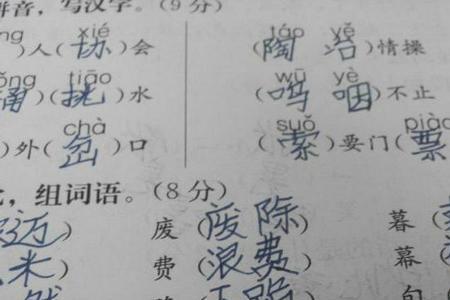 拼音，写汉字。(9分)
ng xié táo yě
)人(协)会 (陶冶)情操
ǒng tiāo wū yè
)(挑)水 (呜咽)不止
chà suǒ piào
)外(岔)口 (索)要门(票
，组词语。(8分)
迈) 废(废除) 暮(
米) 费(浪费) 幕(